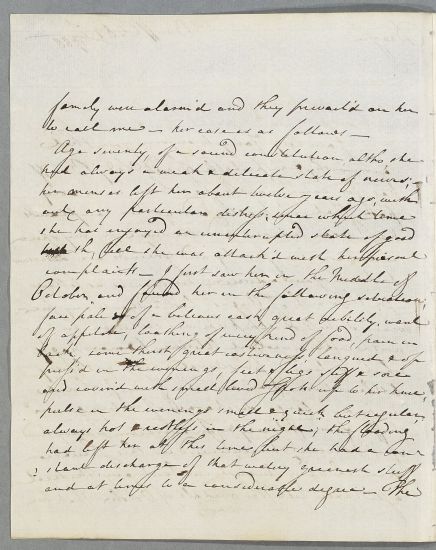 family were alarm'd and they prevail'd on her
to call me — her case is as follows —
Age seventy, of a sound constitution, altho she
had always a weak & delicate state of nerves;
her menses left her about twelve years ago, with
out any particular distress, since which time
she has enjoyed an uninterrupted state of good
th, till she was attack'd with her present
complaints — I first saw her in the Middle of
October, and found her in the following situation,
face pale & of a bilious cast, great debility, want
of appetite, loathing of every kind of food, pain in
some thirst, great costiveness, languid & op
press'd in the mornings, feet & legs stiff & sore
and cover'd with small livid up to her knees
pulse in the evenings small & quick but regular,
always hot & restless in the night; the flooding
had left her at this time, but she had a con
stant discharge of that watery greenish stuff
and at times to a considerable degree — The